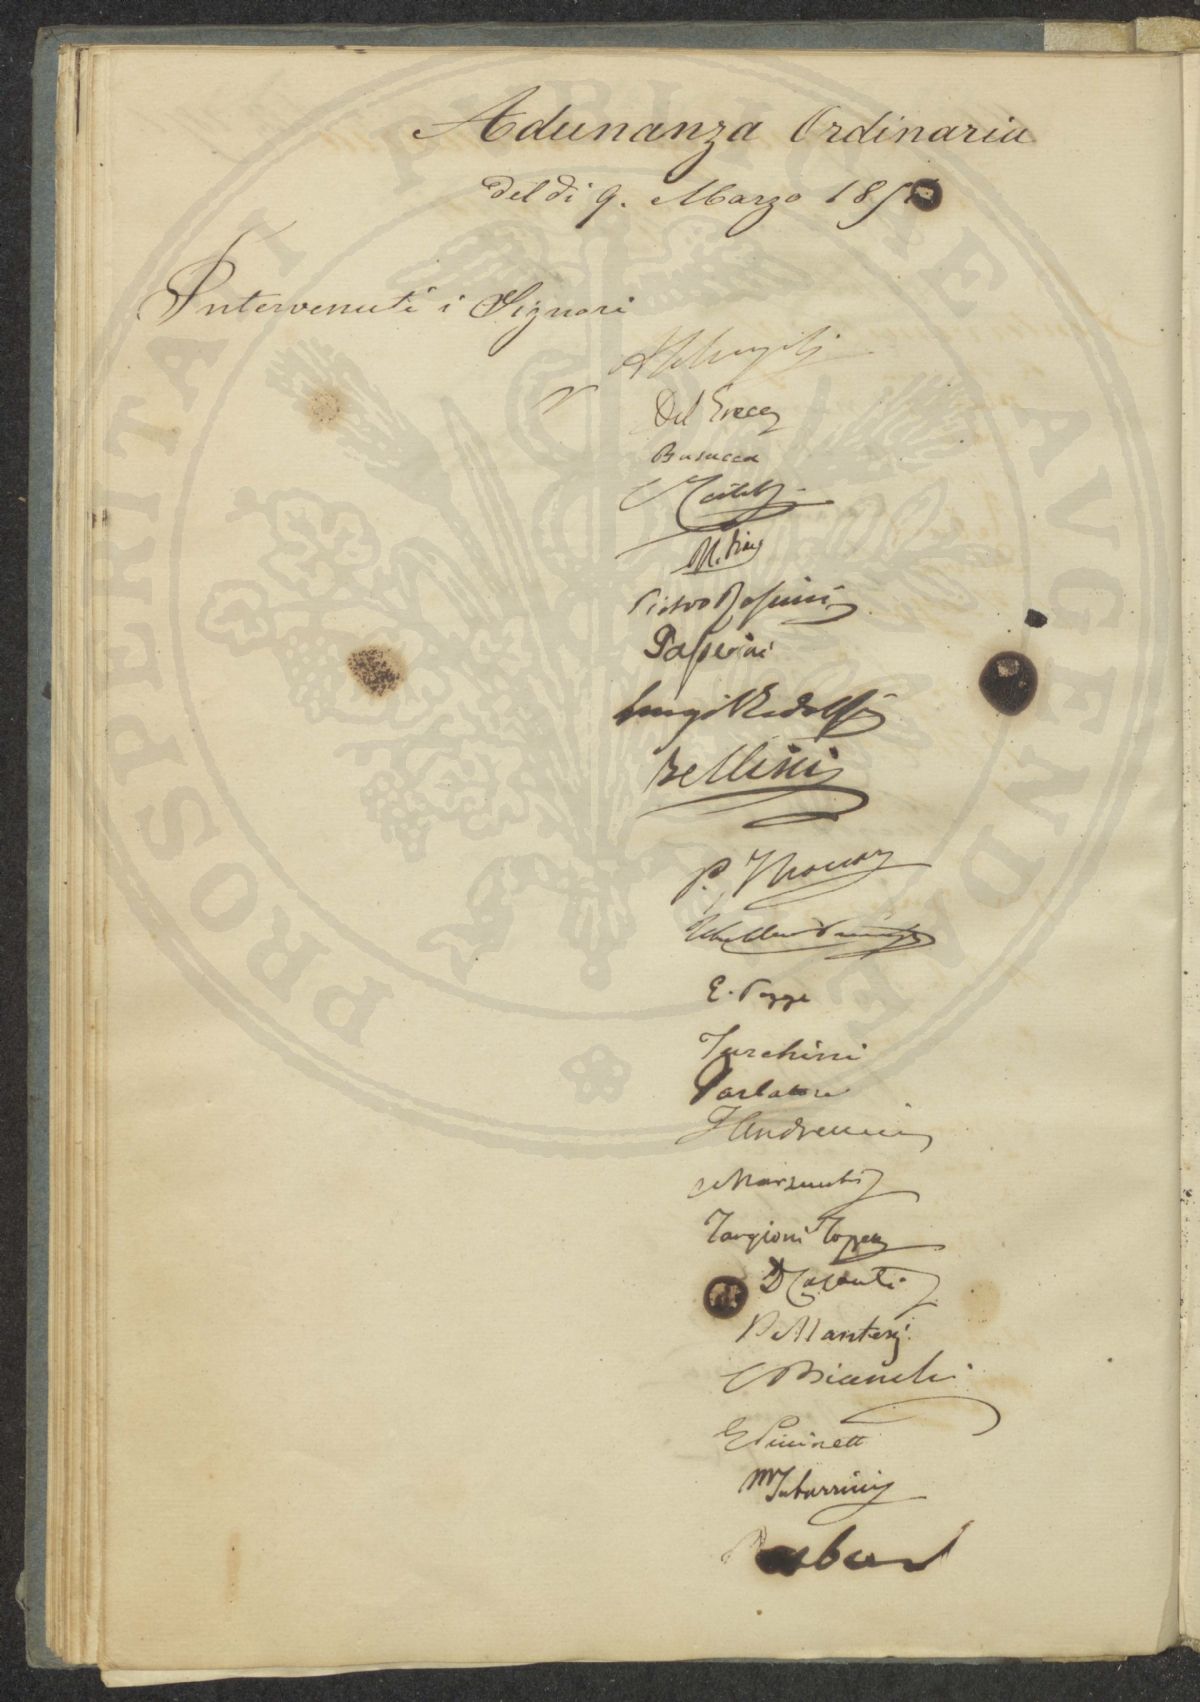 Adunanza Ordinaria
del dì 9. Marzo 185
Intervenuti i Signori
Del Greco
Busacca
Pietro Rossini
Passerini
Luigi Ridolfi
Bellini
P. Thouar
E. Poggi
Turchini
Parlatore
Andreucci
Marzucchi
Targioni Tozzetti
D Casanti
P. Mantери
C Bianchi
M Tabarrini
PROSPERITATI PUBLICAE AUGENDAE